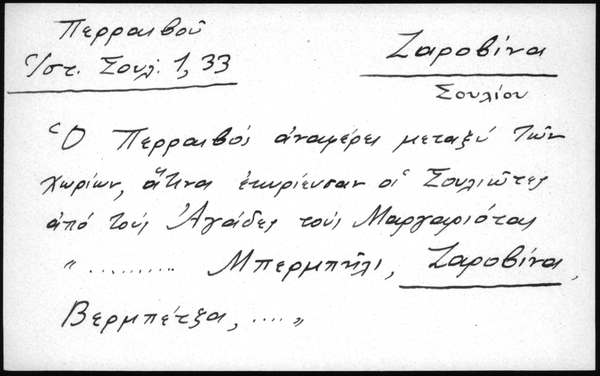 Περραιβοῦ
Ἱστ. Σουλ. 1, 33
Ζαροβίνα
Σουλίου
Ὁ Περραιβός ἀναφέρει μεταξύ τῶν
χωρίων, ἅτινα ἐκυρίευσαν οἱ Σουλιῶτες
ἀπό τούς Ἀγάδες τούς Μαργαριότας
" .......... Μπερμπήλι, Ζαροβίνα,
Βερμπέτζα, .... "